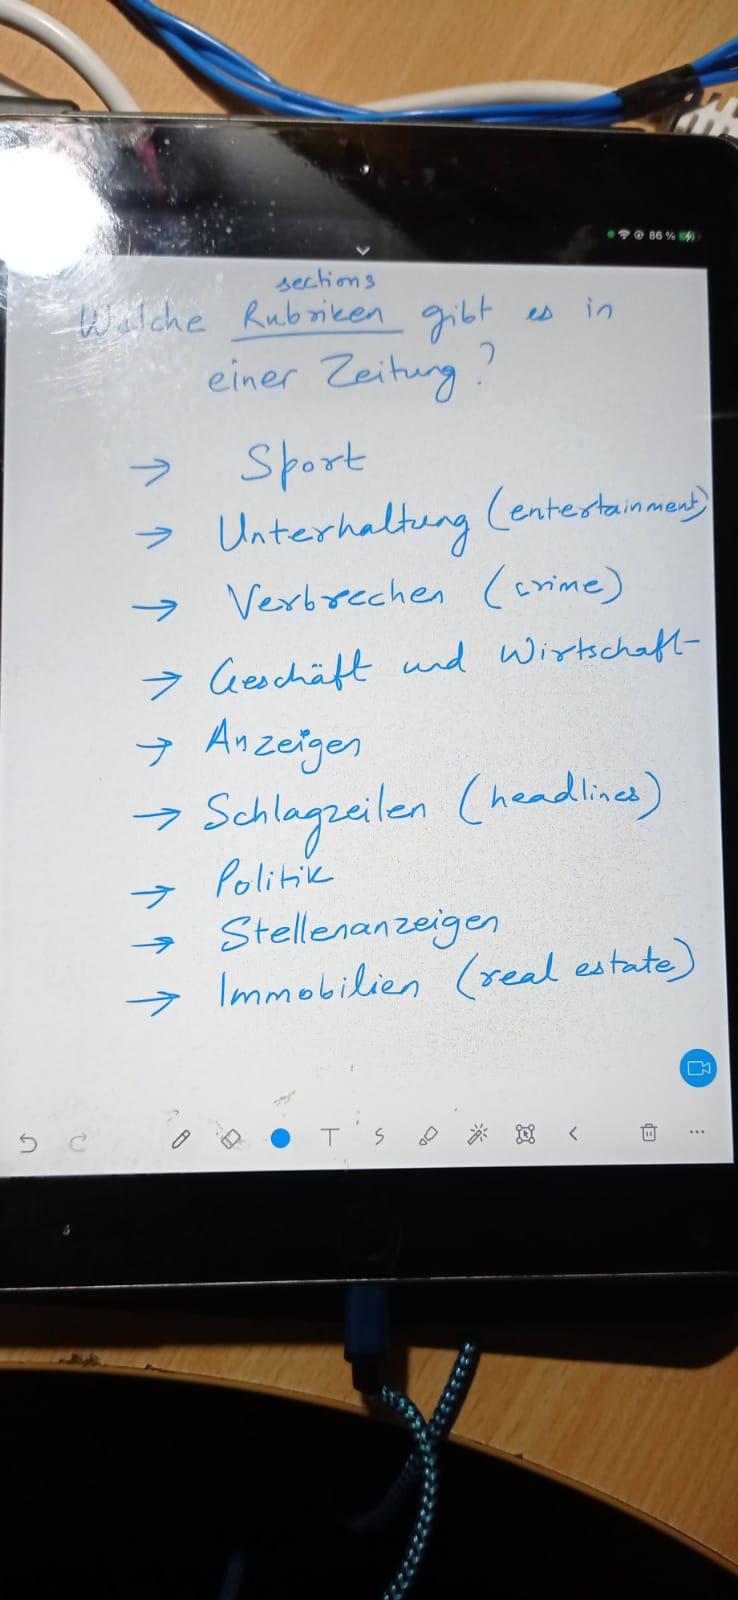 86 %
sections
Welche Rubriken gibt es in
einer Zeitung?
→ Sport
→ Unterhaltung (entertainment)
→ Verbrechen (crime)
→ Geschäft und Wirtschaft
→ Anzeigen
→ Schlagzeilen (headlines)
→ Politik
→ Stellenanzeigen
→ Immobilien (real estate)
T S